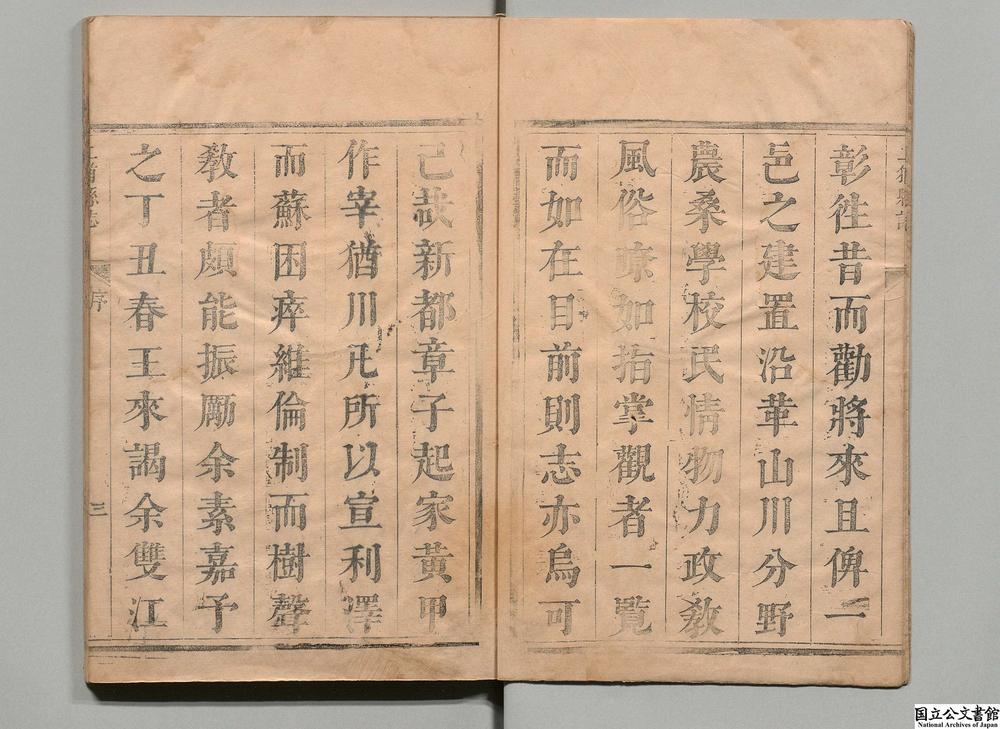 彰徃昔而勸將來且俾一
邑之建置沿革山川分野
農桑學校民情物力政敎
風俗瞭如指掌觀者一覽
而如在目前則志亦烏可
已哉新都章子起家黄甲
作宰猶川凡所以宣利澤
而蘇困瘁維倫制而樹聲
敎者頗能振勵余素嘉予
之丁丑春王來謁余雙江
縣志
序
三
国立公文書館
National Archives of Japan